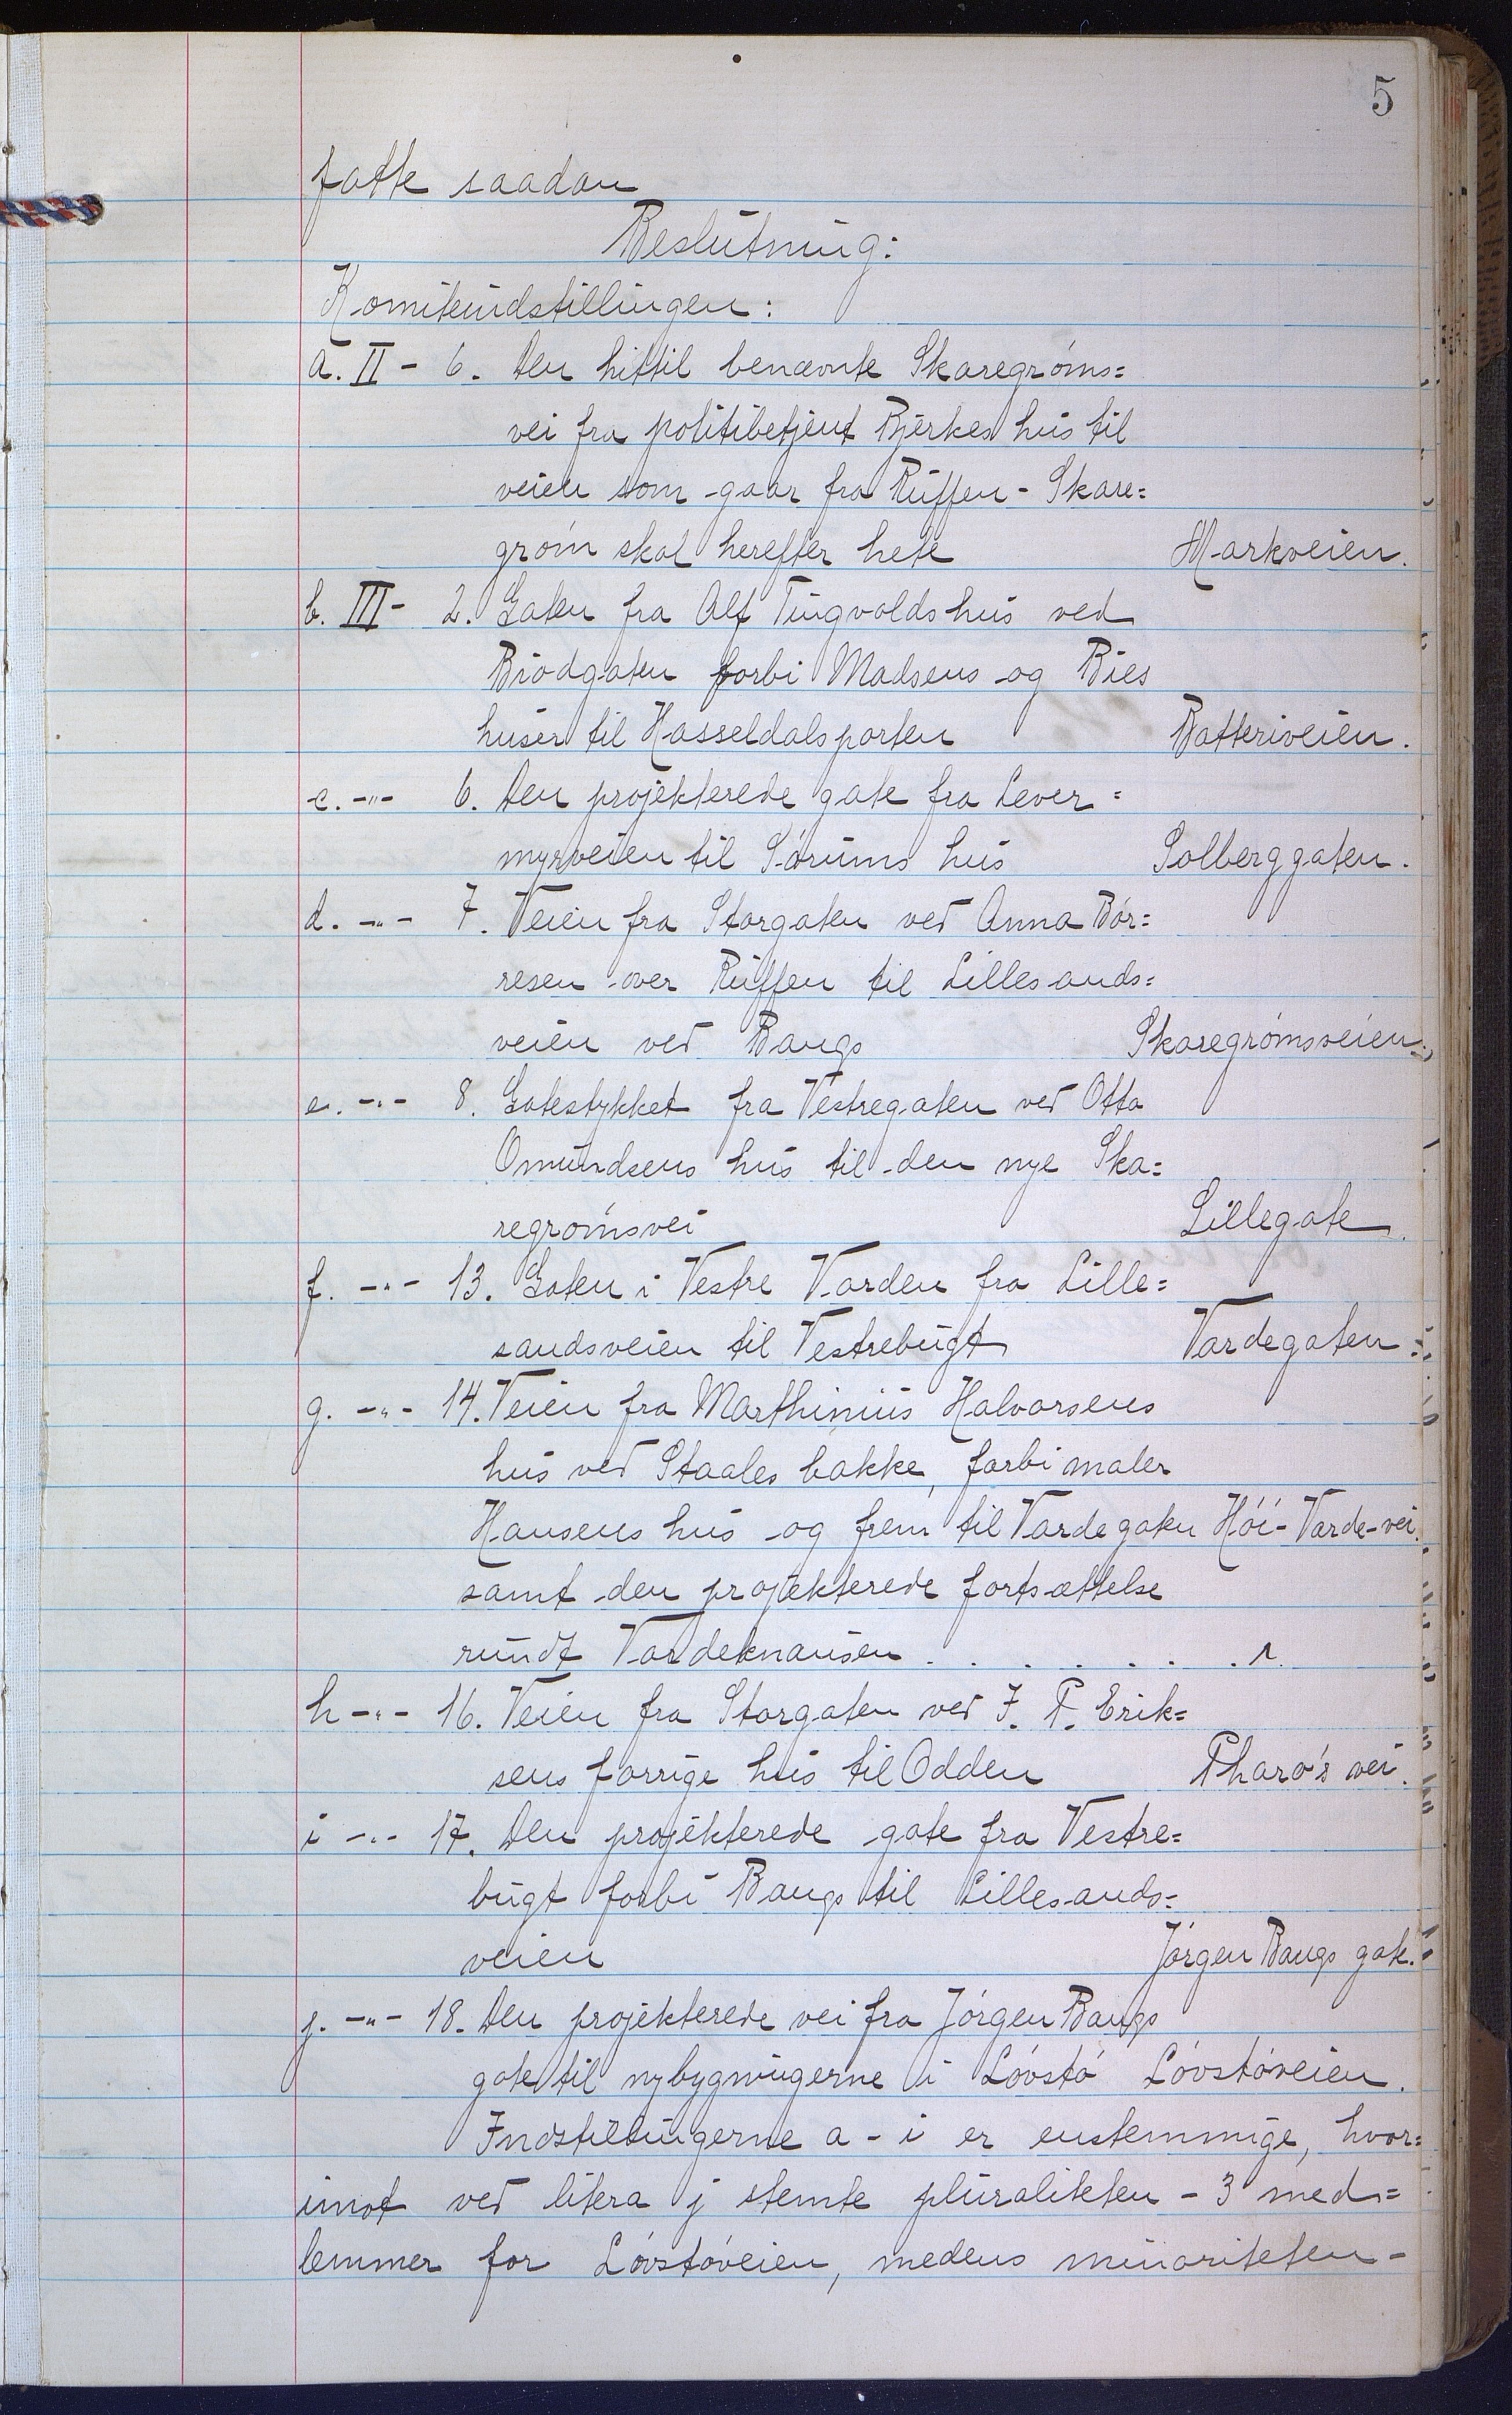 5
fatte saadan
Beslutning:
Komiteindstillingen:
a. II - 6. Den hittil benævnte Skaregrøms=
vei fra politibetjent Bjerkes hus til
veien som gaar fra Ruffen - Skare=
grøm skal herefter hete Markveien.
b. III - 2. Gaten fra Alf Tingvolds hus ved
Brodgaten forbi Madsens og Bies
huser til Hasseldalsporten Batteriveien.
c. -"- 6. Den projekterede gate fra Lever=
myrveien til Sørums hus Solberggaten.
d. -"- 7. Veien fra Storgaten ved Anna Bør=
resen over Ruffen til Lillesands=
veien ved Bangs Skaregrømsveien.
e. -"- 8. Gatestykket fra Vestregaten ved Otto
Omundsens hus til den nye Ska=
regrømsvei Lillegate.
f. -"- 13. Gaten i Vestre Varden fra Lille=
sandsveien til Vestrebugt Vardegaten.
g. -"- 14. Veien fra Marthinius Halvorsens
hus ved Staales bakke, forbi maler
Hansens hus og frem til Vardegaten Høi-Varde-vei.
samt den projekterede fortsættelse
rundt Vardeknausen . . . . . . .
h -"- 16. Veien fra Storgaten ved J. P. Erik=
sens forrige hus til Odden Pharo's vei.
i -"- 17. Den projekterede gate fra Vestre=
bugt forbi Bangs til Lillesands=
veien Jørgen Bangs gate.
j. -"- 18. Den projekterede vei fra Jørgen Bangs
gate til nybygningerne i Løvstø Løvstøveien.
Indstillingerne a - i er enstemmige, hvor=
imot ved litera j stemte pluraliteten - 3 med=
lemmer for Løvstøveien, medens minoriteten -